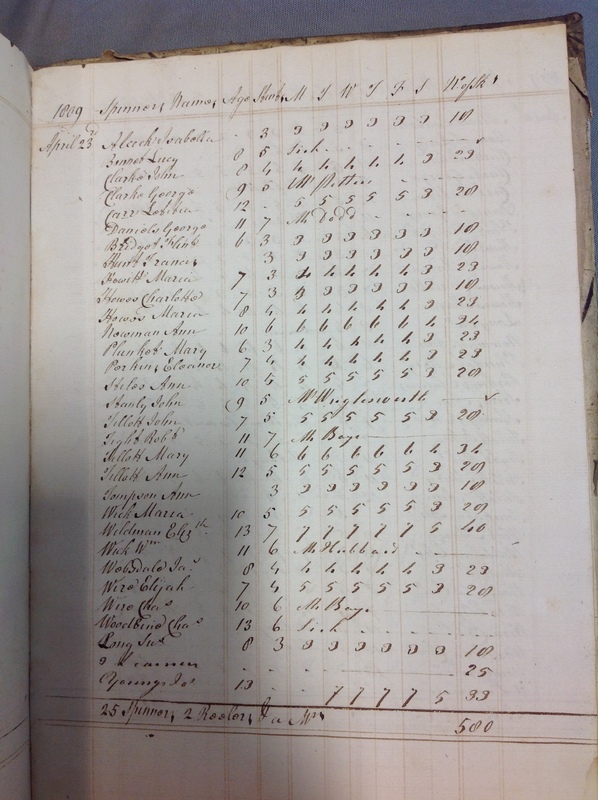 1809 Spinners Names Age Stint M T W T F S Wk
April 23d Alcock Isabella - 3 3 3 3 3 3 3 18
Bennet Lucy 8 5 Sick
Clarke John 8 4 4 4 4 4 4 3 23
Clarke George 9 5 Mr
Carr 12 - 5 5 5 5 5 3 28
Daniels George 11 7 Mr Dodd
Bridget Flint 6 3 3 3 3 3 3 3 18
Hunt Frances 3 3 3 3 3 3 3 18
Howitt Maria 7 3 4 4 4 4 4 3 23
Howes Charlotte 7 3 3 3 3 3 3 3 18
Howes Maria 8 4 4 4 4 4 4 3 23
Newman Ann 10 6 6 6 6 6 6 4 34
Plunket Mary 6 3 4 4 4 4 4 3 23
Perkins Eleanor 7 4 4 4 4 4 4 3 23
Stiles Ann 10 4 5 5 5 5 5 3 28
Stanly John 9 5 Mr Wriglesworth
Tillott John 7 5 5 5 5 5 5 3 28
Tight Robt 11 7 Mr Boys
Tillott Mary 11 6 6 6 6 6 6 4 34
Tillott Ann 12 5 5 5 5 5 5 3 28
Tompson Ann 3 3 3 3 3 3 3 18
Wick Maria 10 5 5 5 5 5 5 3 28
Wildman Elizth 13 7 7 7 7 7 7 5 40
Wick Wm 11 6 Mr Hubbard
Wobsdale Jas 8 4 4 4 4 4 4 3 23
Wire Elijah 7 4 5 5 5 5 5 3 28
Wire Chas 10 6 Mr Boys
Woodbine Chas 13 6 Sick
Long Sus 8 3 3 3 3 3 3 3 18
25
Young Jas 13 - - 7 7 7 7 5 33
25 Spinners 2 Reelers
580